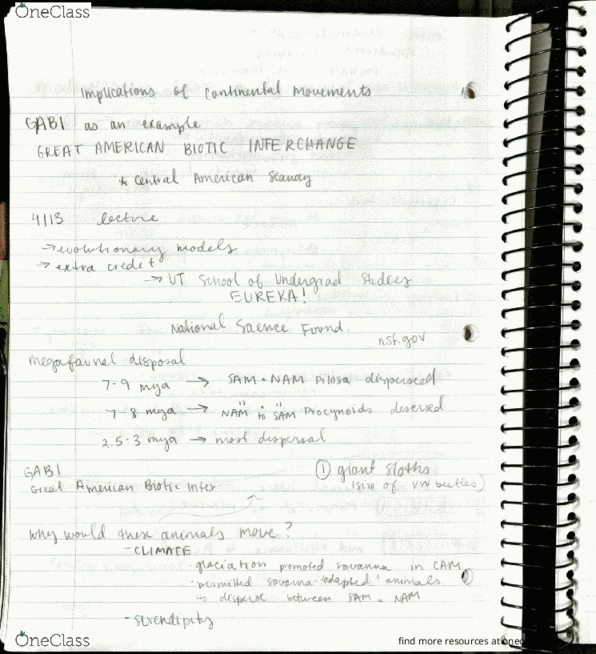 OneClass
Implications of Continental Movements
GABI as an example
GREAT AMERICAN BIOTIC INTERCHANGE
* Central American Seaway
4/13 lecture
→ evolutionary models
→ extra credit
→ UT School of Undergrad Studies
EUREKA!
National Science Found.
nsf.gov
megafaunal disposal
7-9 mya → SAM · NAM Pilosa dispersed
7-8 mya → NAM to SAM Procynoids
2.5-3 mya → most dispersal
GABI
Great American Biotic Inter
① giant sloths
(size of VW beetles)
Why would these animals move?
- CLIMATE
· glaciation promoted savanna in CAM
· permitted savanna-adapted animals
to disperse between SAM · NAM
- serendipity
OneClass
find more resources at onec